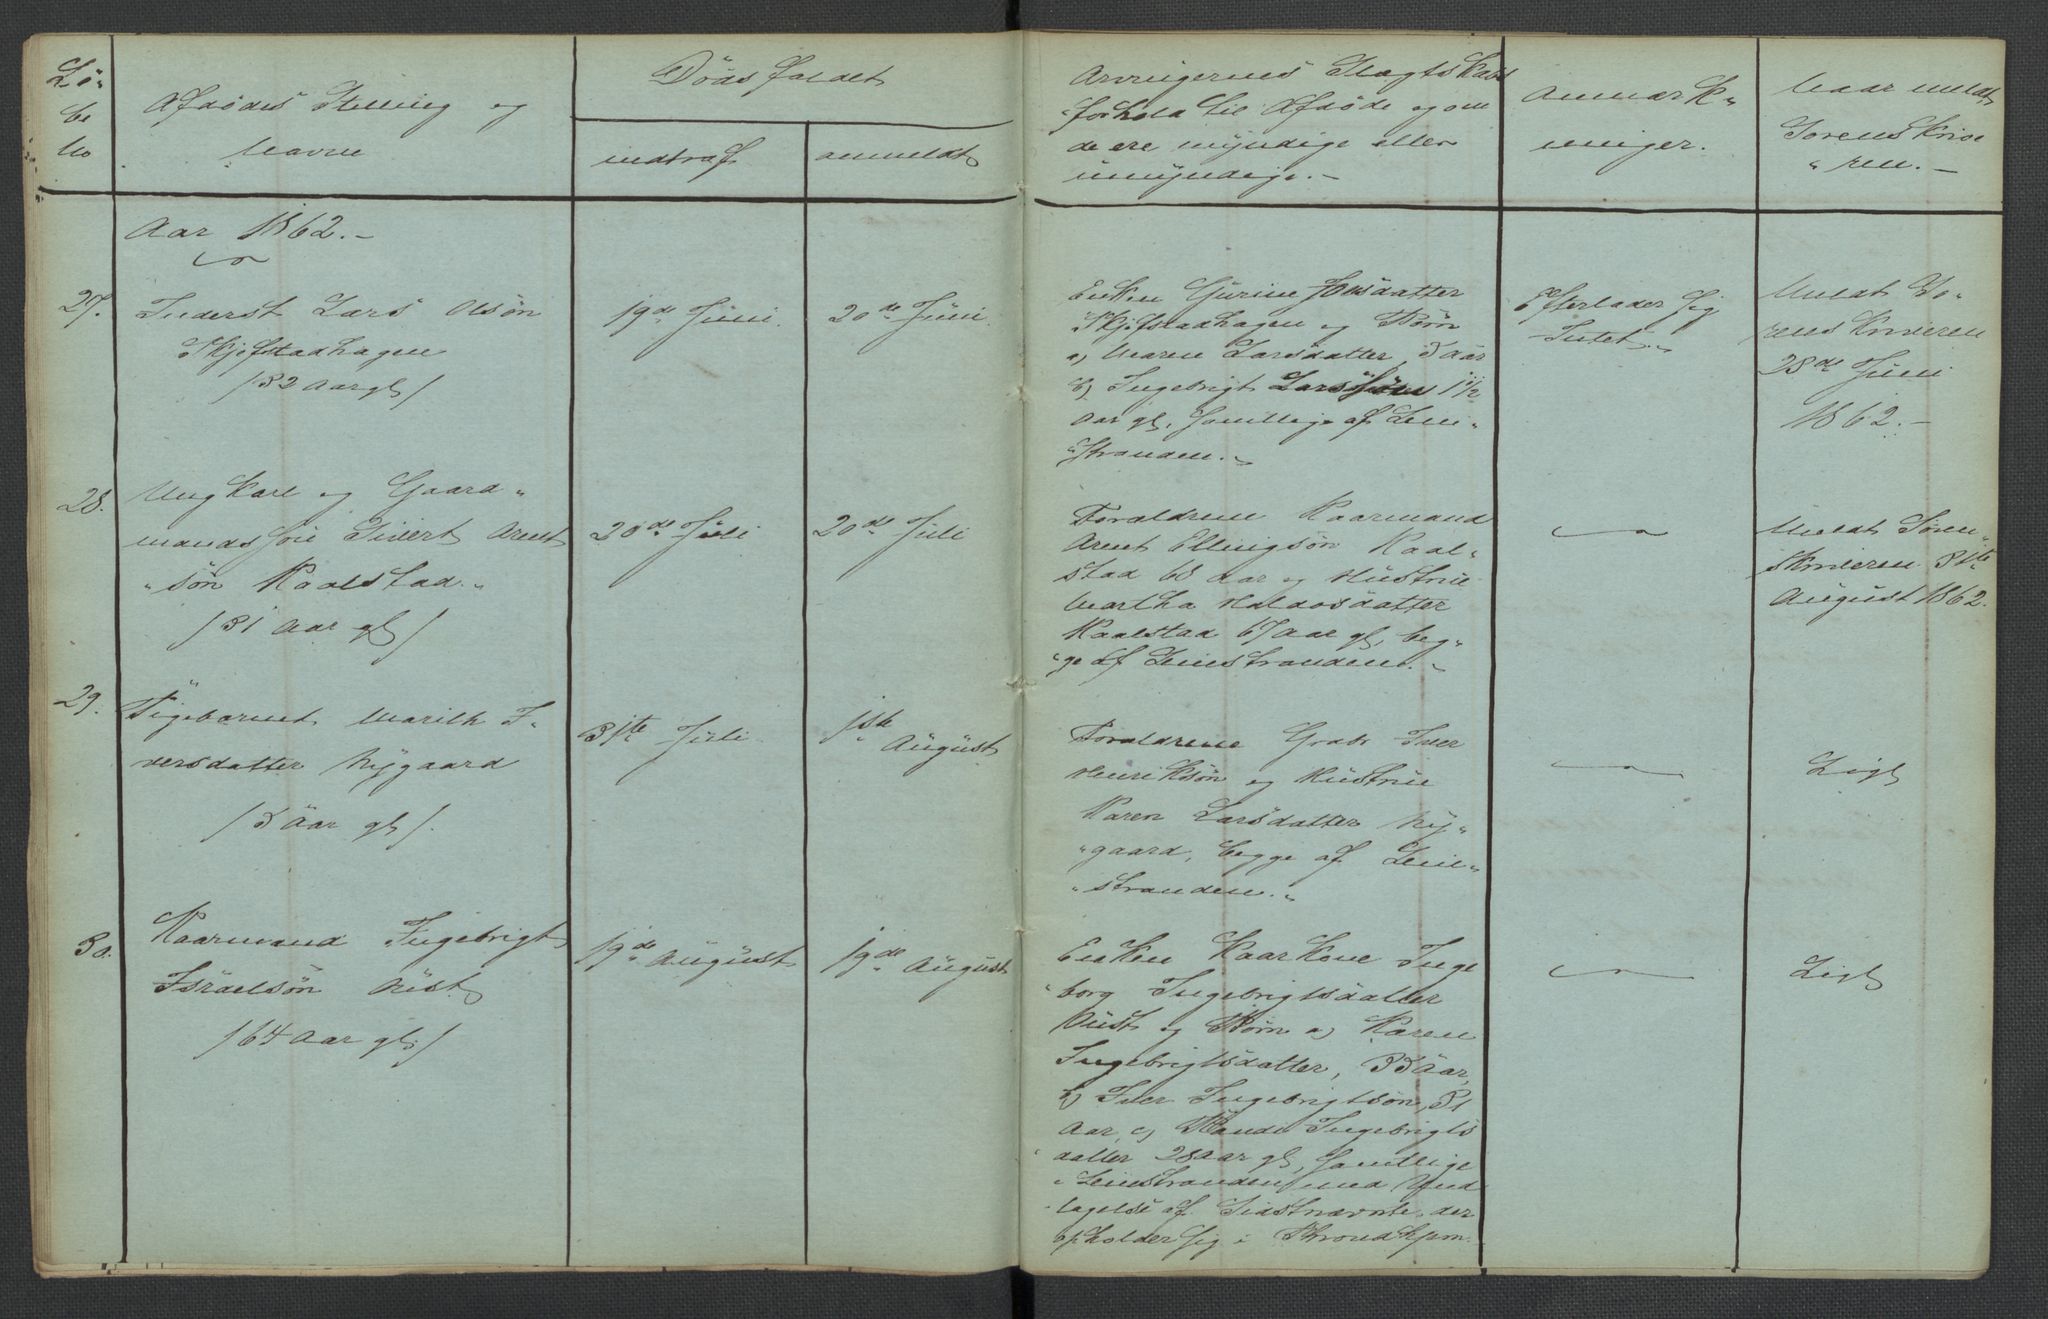 Lö-
be
No
Afdödes Stilling og
Navn
Dödsfaldet
indtraf
anmeldt
Arvingernes Slægtskabs
forhold til Afdöde og om
de ere myndige eller
umyndige.-
Anmærk-
ninger.
Naar meldt
Sorenskrive
"ren.-
Aar 1862.-
27.
Inderst Lars Olsön
Skjefstadhagen
/32 Aar gl/
19de Juni.
20de Juni.
Enken Gurine Jonsdatter
Skjefstadhagen og Börn
a, Maren Larsdatter 5 Aar
b, Ingebrigt Larssön 1 1/2
Aar gl, samtlige af Lein-
"stranden.-
Efterlader sig
Intet.-
Meldt So-
renskriveren
28de Juni
1862.-
28.
Ungkarl og Gaard-
mandssön Sivert Arnt
"sön Kaalstad.-
/31 Aar gl/
20de Juli
20de Juli
Forældrene Kaarmand
Arnt Ellingsön Kaal-
stad 68 Aar og Hustrue
Martha Haldosdatter
Kaalstad 67 Aar gl, beg-
"ge af Leinstranden.-
Meldt Soren-
skriveren 31te
August 1862.
29.
Pigebarnet Marith I-
versdatter Nygaard
/5 Aar gl/.
31te Juli
1ste August
Forældrene Grdbr Iver
Henriksön og Hustrue
Karen Larsdatter Ny-
"gaard, begge af Lein-
"stranden.-
Ligt
30.
Kaarmand Ingebrigt
Israelsön Aust
/64 Aar gl/
19de August
19de August
Enken Kaarkone Inge
"borg Ingebrigtsdatter
Aust og Börn a, Karen
Ingebrigtsdatter, 35 Aar,
b, Iver Ingebrigtsön, 31
Aar, c, Randi Ingebrigts
"datter 28 Aar gl, samtlige
i Leinstranden med Und
"tagelse af Sidstnævnte, der
opholder sig i Throndhjem.
Ligt